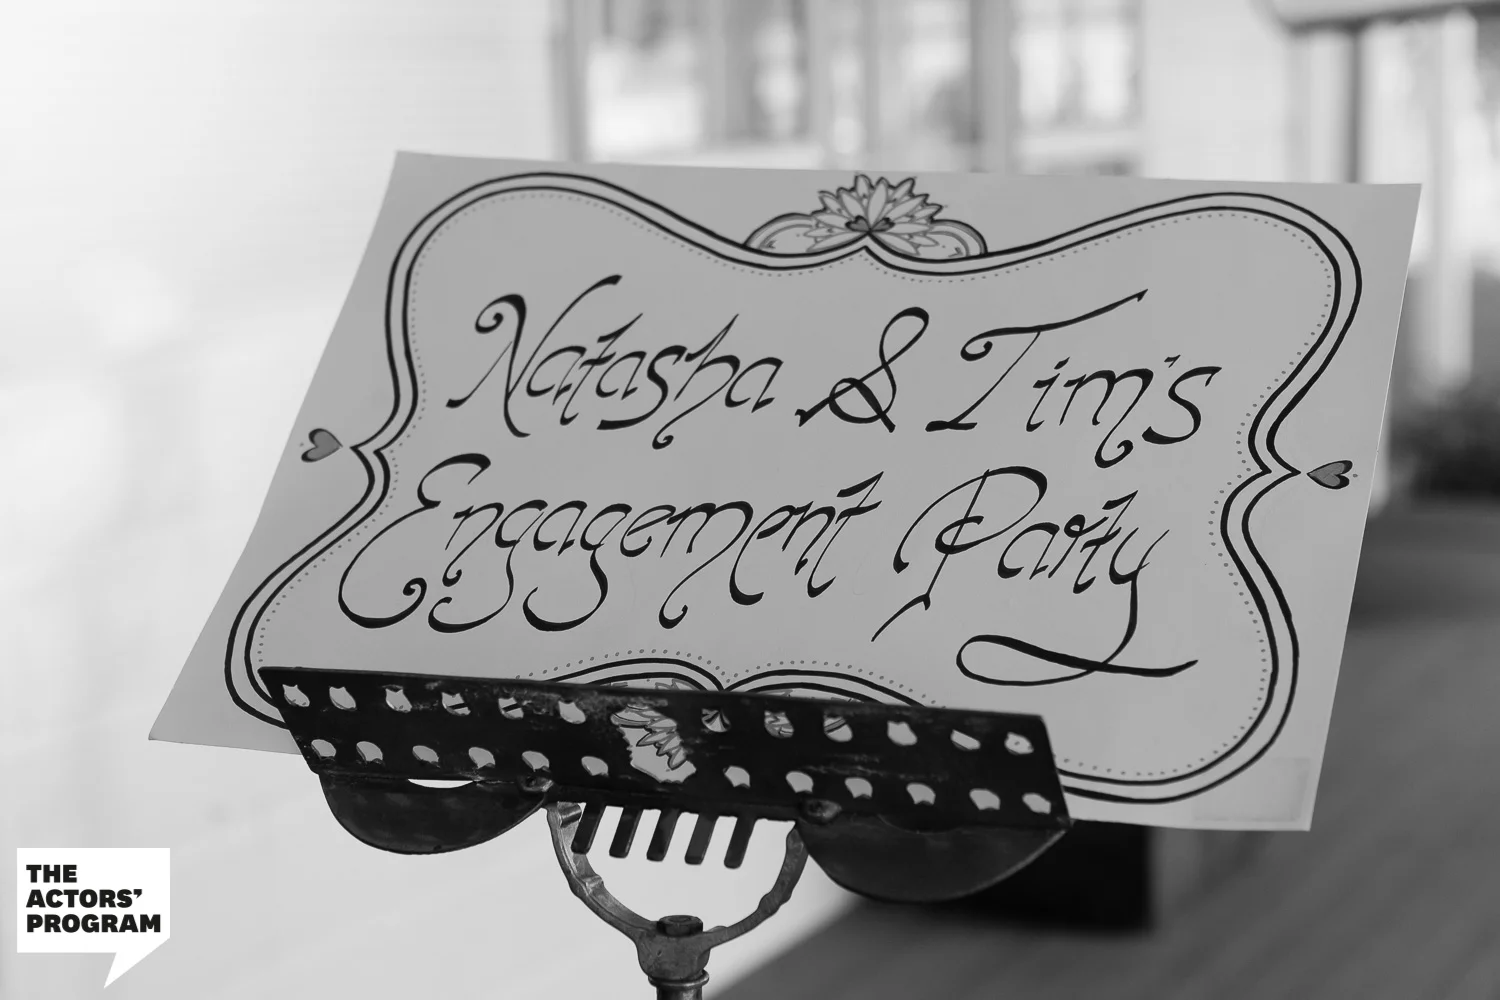 Natasha & Tim's
Engagement Party
THE
ACTORS'
PROGRAM